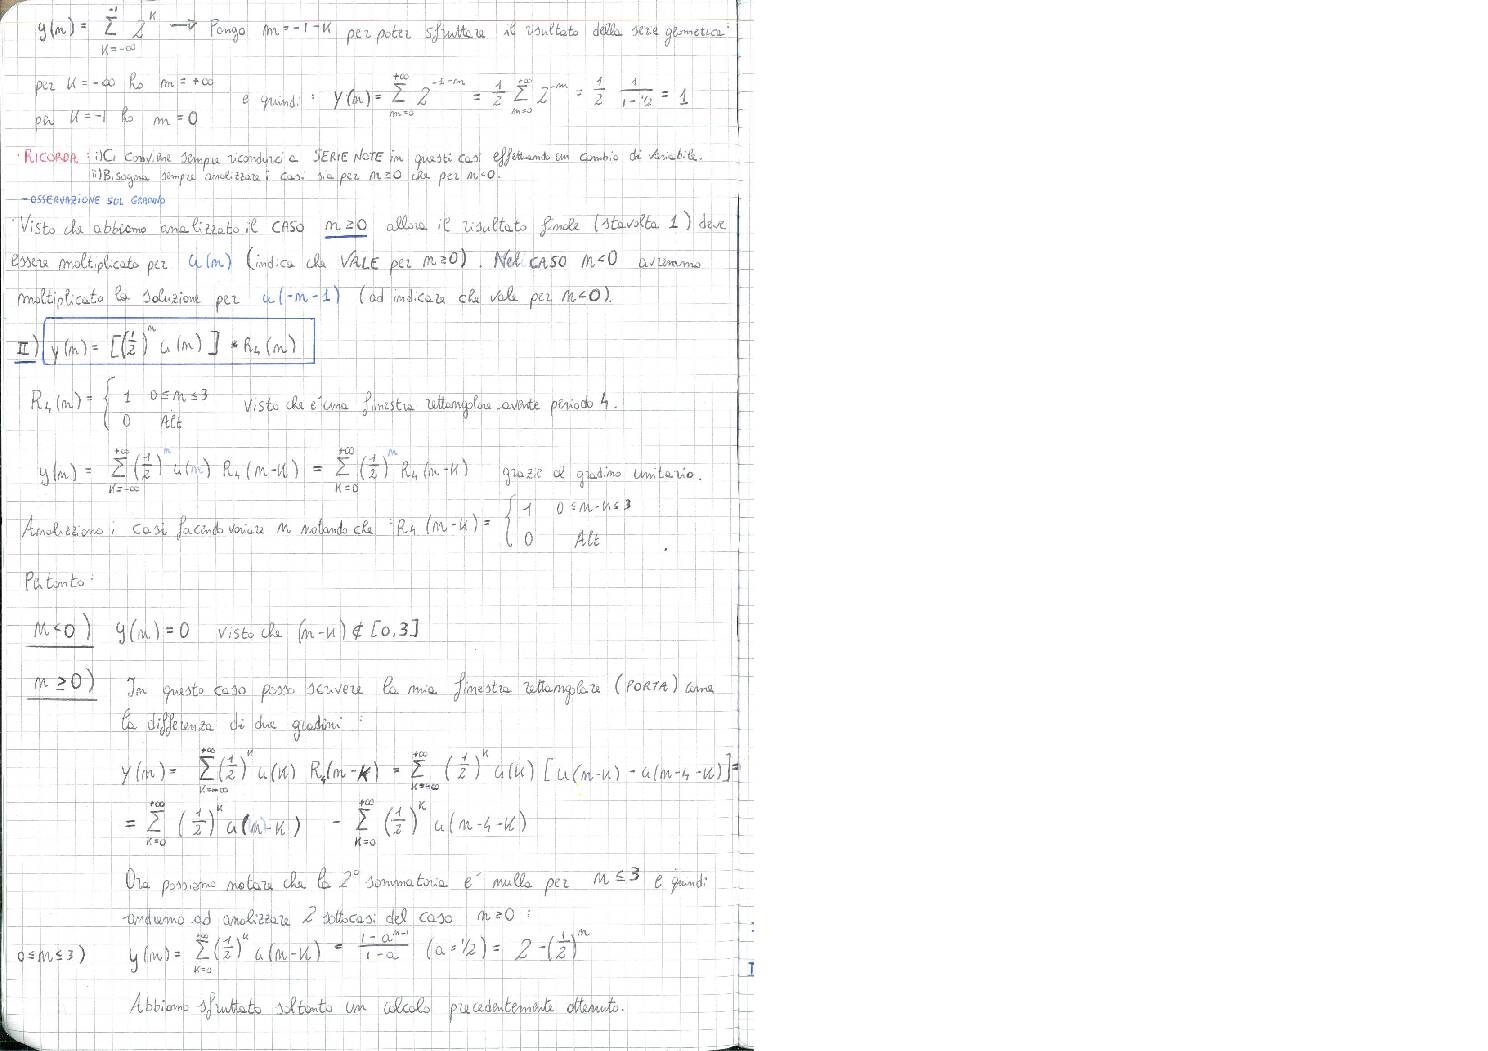 y(n) = Σ_{K=-∞}^{-1} 2^K → Pongo m = -1-K per poter sfruttare il risultato della serie geometrica:
per K = -∞ ho m = +∞
e quindi: y(n) = Σ_{m=0}^{+∞} 2^{-1-m} = 1/2 Σ_{m=0}^{+∞} 2^{-m} = 1/2 1/(1-1/2) = 1
per K = -1 ho m = 0
RICORDA: i) Ci conviene sempre ricondurci a SERIE NOTE in questi casi effettuando un cambio di variabile.
ii) Bisogna sempre analizzare i casi sia per n≥0 che per n<0.
- OSSERVAZIONE SUL GRADINO
Visto che abbiamo analizzato il CASO n≥0 allora il risultato finale (stavolta 1) deve
essere moltiplicato per u(n) (indica che VALE per n≥0). Nel CASO n<0 avremmo
moltiplicato la soluzione per u(-n-1) (ad indicare che vale per n<0).
II) y(n) = [(1/2)^n u(n)] * R₄(n)
R₄(n) = { 1 0≤n≤3
0 Alt
Visto che è una finestra rettangolare avente periodo 4.
y(n) = Σ_{K=-∞}^{+∞} (1/2)^n u(n) R₄(n-K) = Σ_{K=0}^{+∞} (1/2)^n R₄(n-K) grazie al gradino unitario.
Analizziamo i casi facendo variare n notando che: R₄(n-K) = { 1 0≤n-K≤3
0 Alt
Pertanto:
n<0) y(n) = 0 visto che (n-K) ∉ [0,3]
n≥0) In questo caso posso scrivere la mia finestra rettangolare (PORTA) come
la differenza di due gradini:
y(n) = Σ_{K=-∞}^{+∞} (1/2)^K u(K) R₄(n-K) = Σ_{K=-∞}^{+∞} (1/2)^K u(K) [u(n-K) - u(n-4-K)] =
= Σ_{K=0}^{+∞} (1/2)^K u(n-K) - Σ_{K=0}^{+∞} (1/2)^K u(n-4-K)
Ora possiamo notare che la 2° sommatoria è nulla per n≤3 e quindi
andremo ad analizzare 2 sottocasi del caso n≥0:
0≤n≤3) y(n) = Σ_{K=0}^{+∞} (1/2)^K u(n-K) = (1-a^{n-1})/(1-a) (a=1/2) = 2-(1/2)^n
Abbiamo sfruttato soltanto un calcolo precedentemente ottenuto.